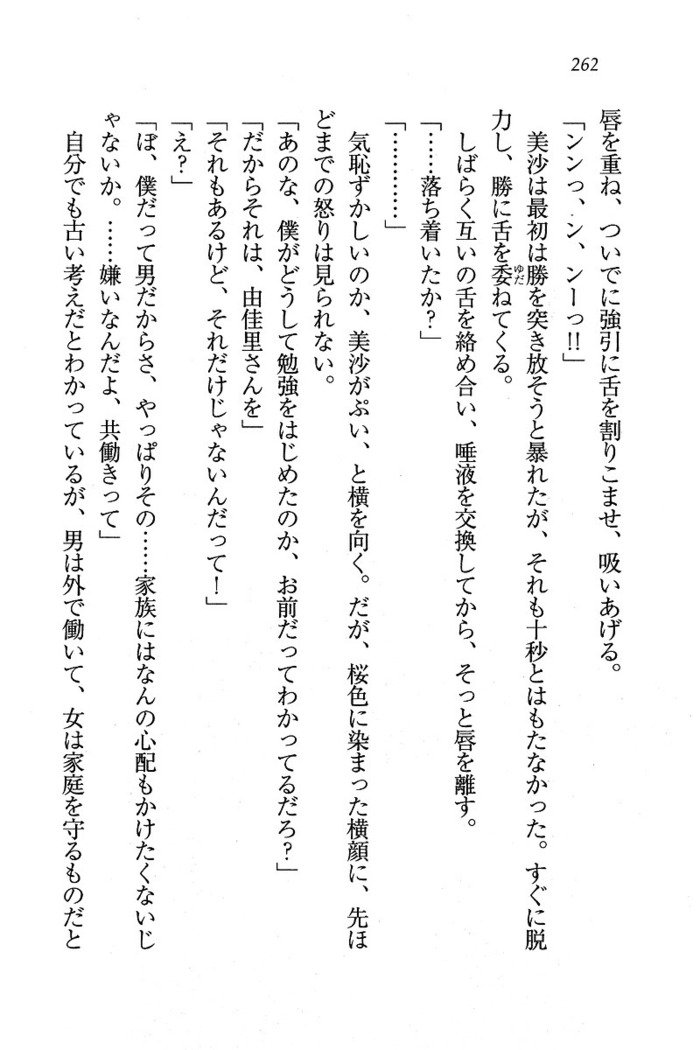 262
唇を重ね、ついでに強引に舌を割りこませ、吸いあげる。
「ンンっ、ン、ンーっ!!」
美沙は最初は勝を突き放そうと暴れたが、それも十秒とはもたなかった。すぐに脱
力し、勝に舌を委ゆだねてくる。
しばらく互いの舌を絡め合い、唾液を交換してから、そっと唇を離す。
「……落ち着いたか？」
「…………」
気恥ずかしいのか、美沙がぷい、と横を向く。だが、桜色に染まった横顔に、先ほ
どまでの怒りは見られない。
「あのな、僕がどうして勉強をはじめたのか、お前だってわかってるだろ？」
「だからそれは、由佳里さんを」
「それもあるけど、それだけじゃないんだって！」
「え？」
「ぼ、僕だって男だからさ、やっぱりその……家族にはなんの心配もかけたくないじ
ゃないか。……嫌いなんだよ、共働きって」
自分でも古い考えだとわかっているが、男は外で働いて、女は家庭を守るものだと